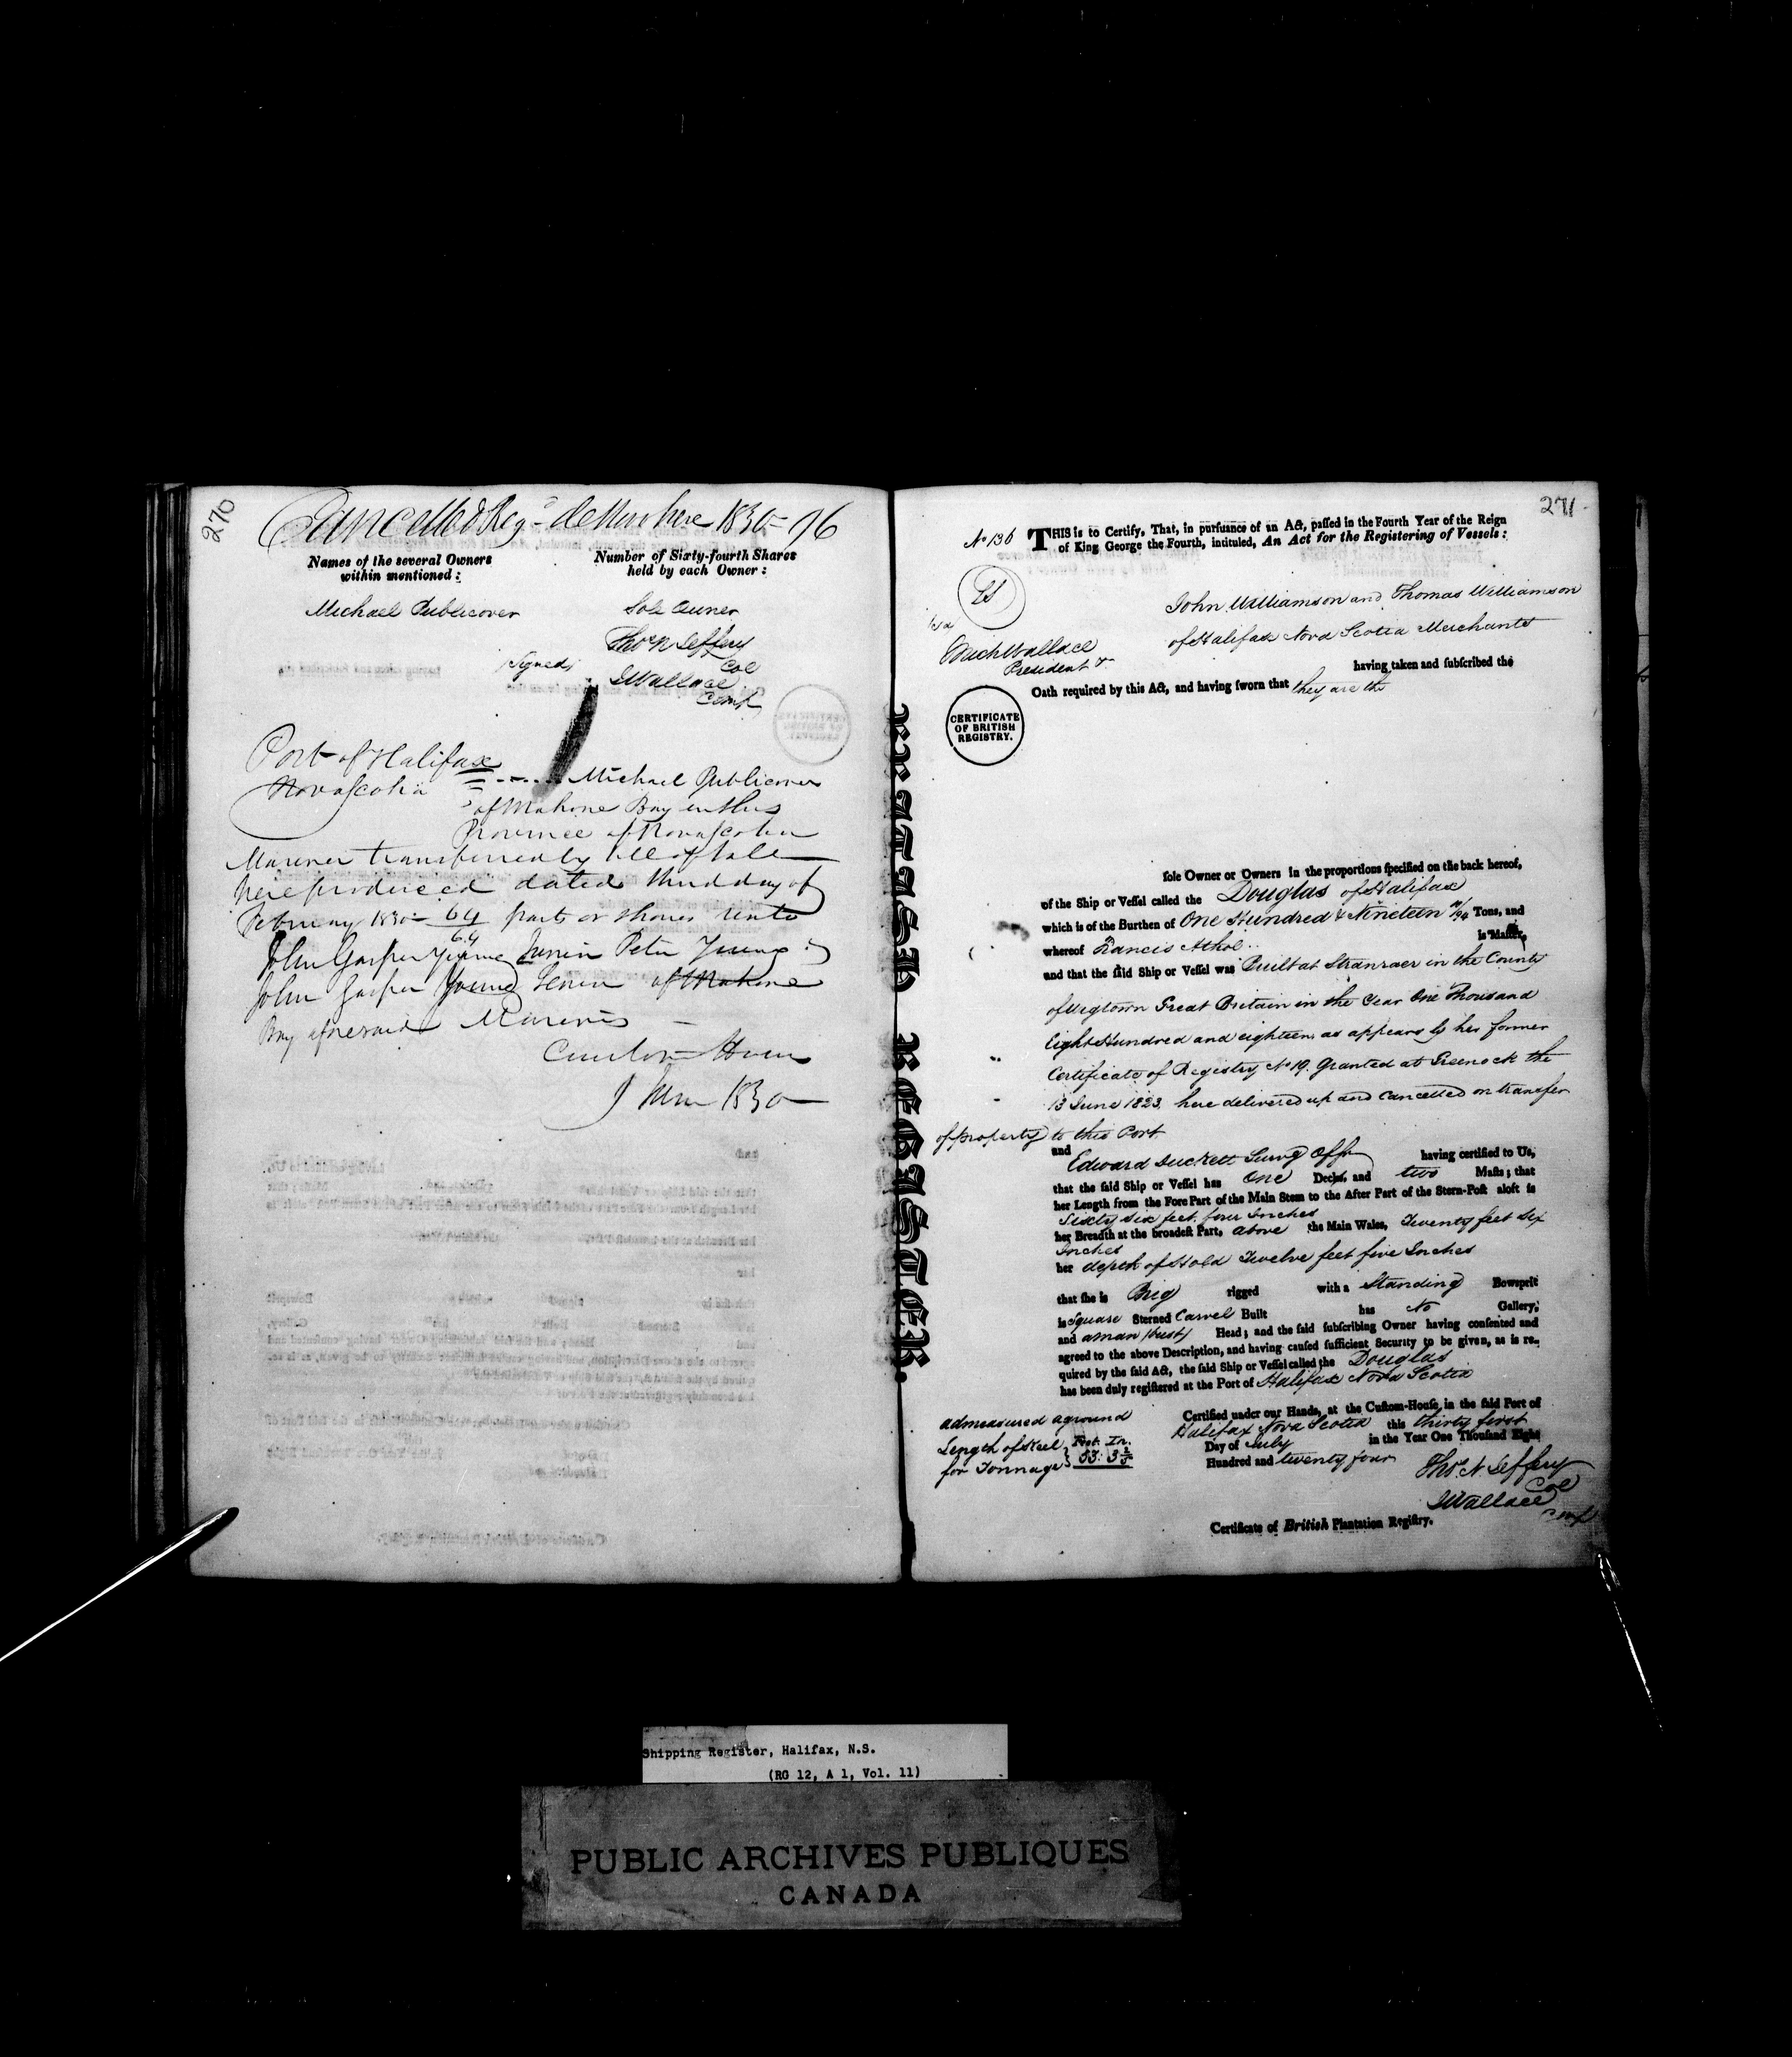 270
Cancelled Reg. de Novo here 1830 - 76
Names of the several Owners
within mentioned :
Number of Sixty-fourth Shares
held by each Owner :
Michael Publicover
Sole Owner
Signed
Thos N Jeffery
Col
Wallace
Comp
Port of Halifax
Nova Scotia
Michael Publicover
of Mahone Bay in this
Province of Nova Scotia
Mariner transferred by bill of sale
here produced dated third day of
February 1830 64/64 parts or shares unto
John Gasper Young Junior Peter Young &
John Gasper Young Senior of Mahone
Bay aforesaid Mariners
Custom House
1830
271
No 136
THIS is to Certify, That, in pursuance of an Act, passed in the Fourth Year of the Reign
of King George the Fourth, intituled, An Act for the Registering of Vessels :
John Williamson and Thomas Williamson
of Halifax Nova Scotia Merchants
Wallace
President
having taken and subscribed the
Oath required by this Act, and having sworn that they are the
CERTIFICATE
OF BRITISH
REGISTRY.
BRITISH REGISTER.
sole Owner or Owners in the proportions specified on the back hereof,
of the Ship or Vessel called the Douglas of Halifax
which is of the Burthen of One Hundred & Nineteen /94 Tons, and
whereof Francis Athol is Master,
and that the said Ship or Vessel was Built at Stranraer in the County
of Wigtown Great Britain in the Year One Thousand
Eight Hundred and eighteen as appears by her former
Certificate of Registry No 19. Granted at Greenock the
13 June 1823. here delivered up and Cancelled on transfer
of property to this Port.
and Edward Duckett Survg Offr having certified to Us,
that the said Ship or Vessel has One Decks, and two Masts ; that
her Length from the Fore Part of the Main Stem to the After Part of the Stern-Post aloft is
Sixty six feet four Inches
her Breadth at the broadest Part, above the Main Wales, Twenty feet Six
Inches
her depth of Hold Twelve feet five Inches
that she is Brig rigged with a Standing Bowsprit
is Square Sterned Carvel Built has No Gallery,
and a man bust Head ; and the said subscribing Owner having consented and
agreed to the above Description, and having caused sufficient Security to be given, as is re-
quired by the said Act, the said Ship or Vessel called the Douglas
has been duly registered at the Port of Halifax Nova Scotia
Certified under our Hands, at the Custom-House, in the said Port of
Halifax Nova Scotia this thirty first
Day of July in the Year One Thousand Eight
Hundred and twenty four
admeasured aground
Length of Keel
for Tonnage
Feet. In.
53. 3 2/5
Thos. N Jeffery
Col
Wallace
Comp
Certificate of British Plantation Registry.
Shipping Register, Halifax, N.S.
(RG 12, A 1, Vol. 11)
PUBLIC ARCHIVES PUBLIQUES
CANADA